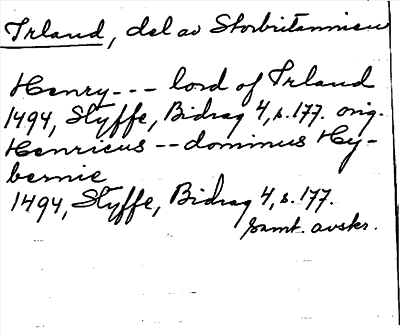 Irland, del av Storbritannien
Henry--- lord of Irland
1494, Styffe, Bidrag 4, s. 177. orig.
Henricus -- dominus Hy-
bernie
1494, Styffe, Bidrag 4, s. 177.
samt. avskr.